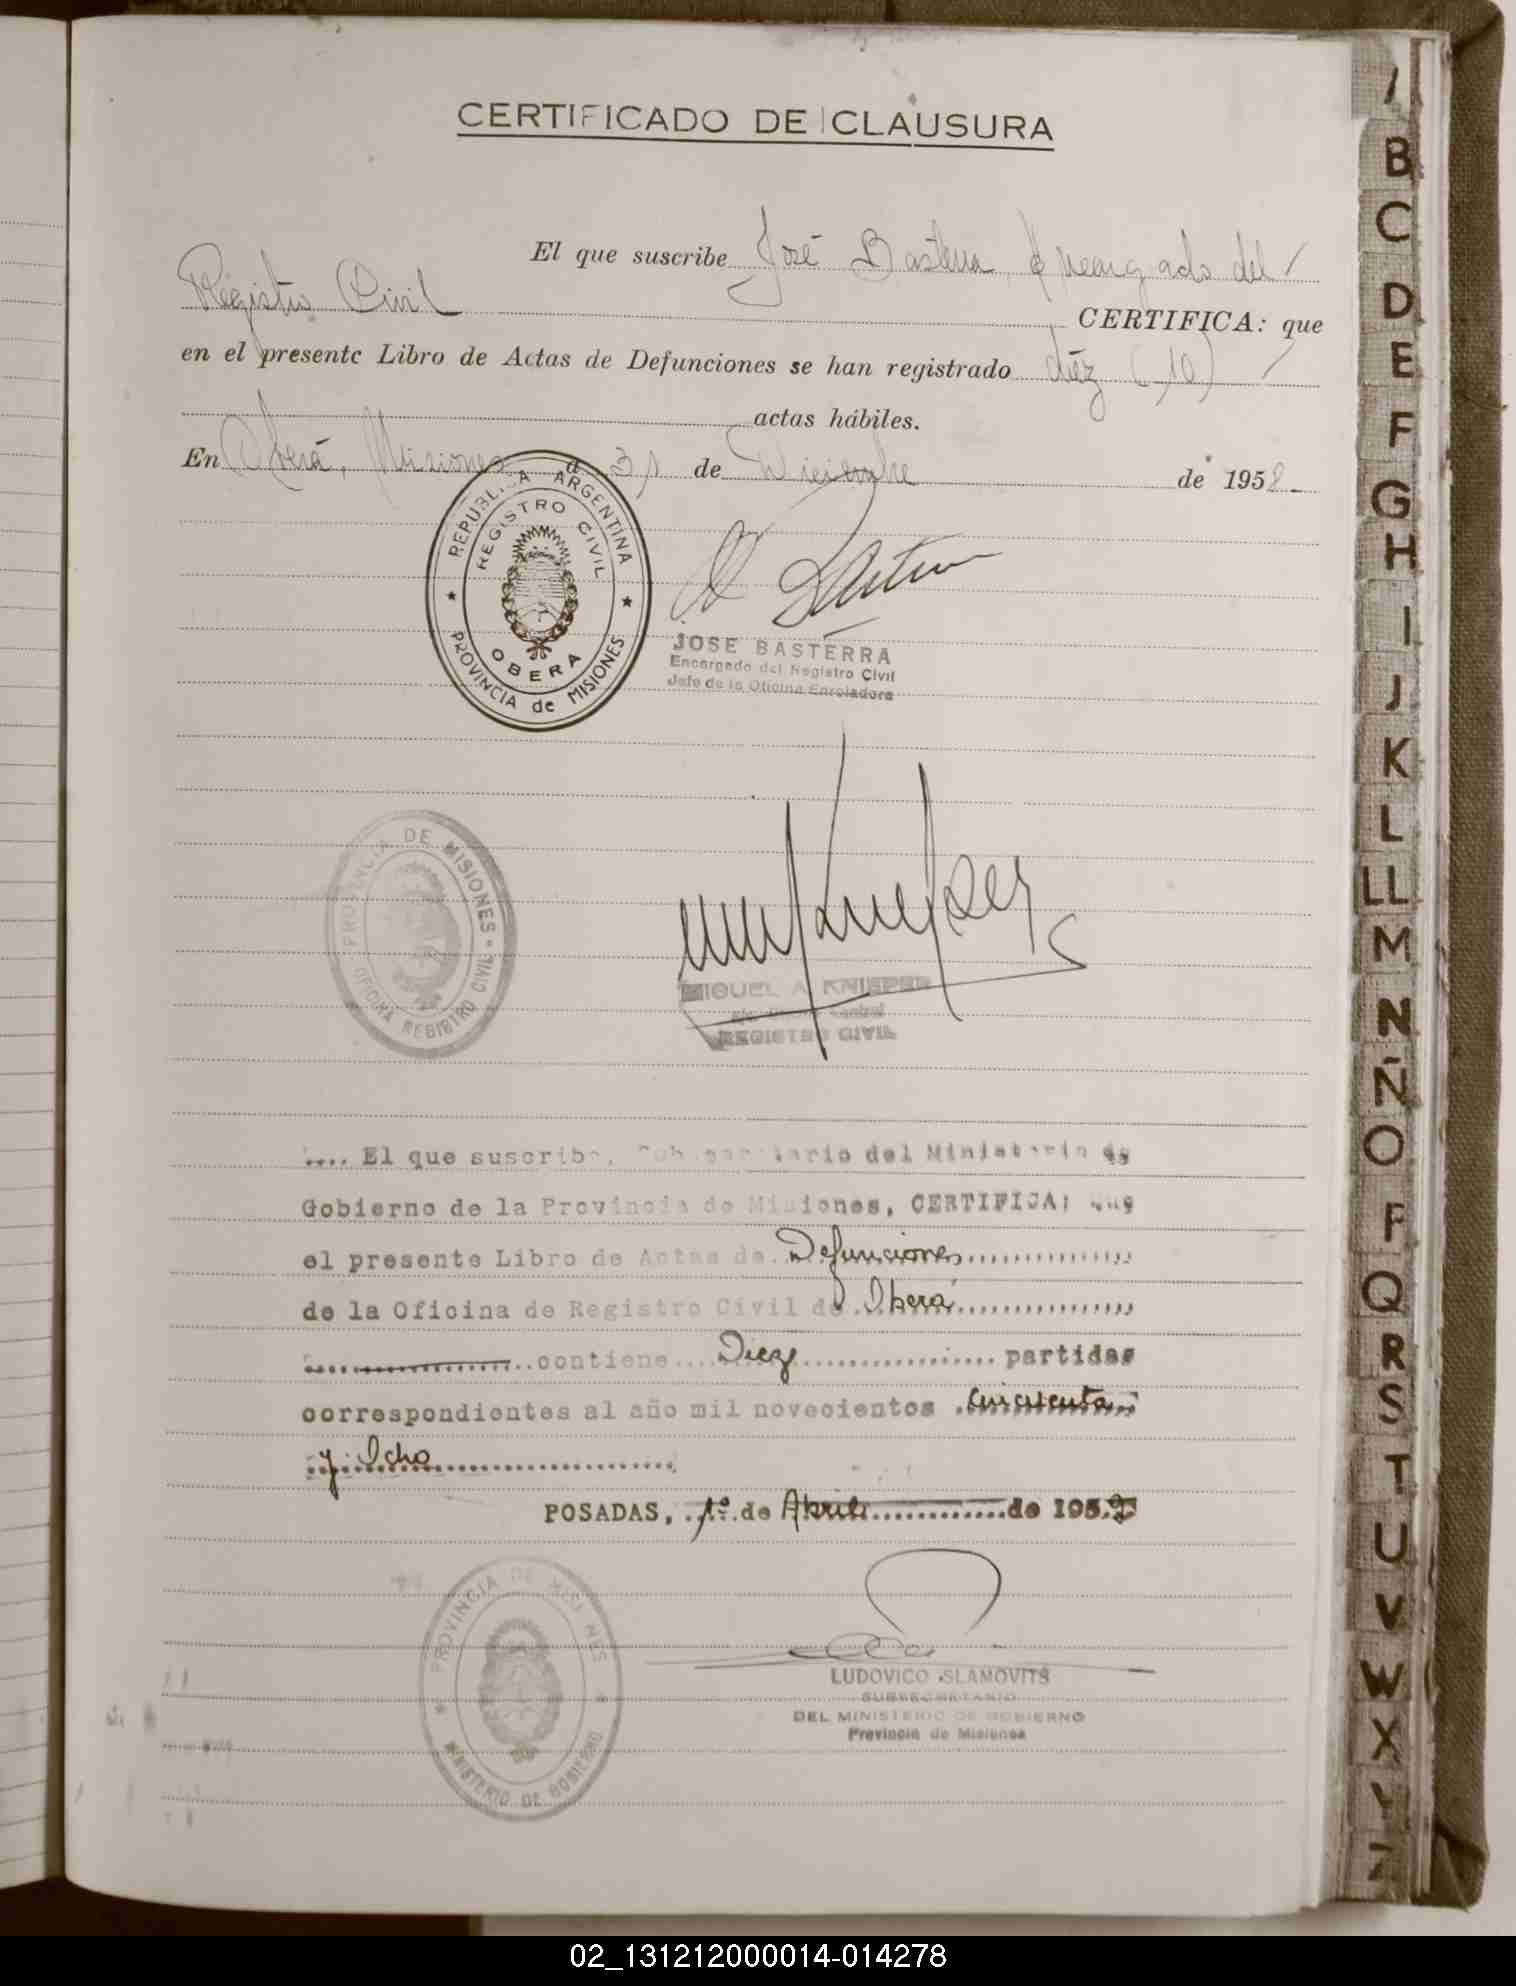 CERTIFICADO DE CLAUSURA
El que suscribe José Basterra, Encargado del
Registro Civil CERTIFICA: que
en el presente Libro de Actas de Defunciones se han registrado diéz (10)
actas hábiles.
En Oberá, Misiones a 31 de Diciembre de 1958
REPUBLICA ARGENTINA
REGISTRO CIVIL
OBERA
PROVINCIA de MISIONES
JOSE BASTERRA
Encargado del Registro Civil
Jefe de la Oficina Enroladora
PROVINCIA DE MISIONES
OFICINA REGISTRO CIVIL
MIGUEL A. KNIEPER
REGISTRO CIVIL
.... El que suscribe, Subsecretario del Ministerio de
Gobierno de la Provincia de Misiones, CERTIFICA: que
el presente Libro de Actas de Defunciones
de la Oficina de Registro Civil de Oberá
contiene Diez partidas
correspondientes al año mil novecientos cincuenta
y Ocho
POSADAS, 1º de Abril de 1959
PROVINCIA DE MISIONES
MINISTERIO DE GOBIERNO
LUDOVICO SLAMOVITS
SUBSECRETARIO
DEL MINISTERIO DE GOBIERNO
Provincia de Misiones
B
C
D
E
F
G
H
I
J
K
L
LL
M
N
Ñ
O
P
Q
R
S
T
U
V
W
X
Y
Z
02_131212000014-014278